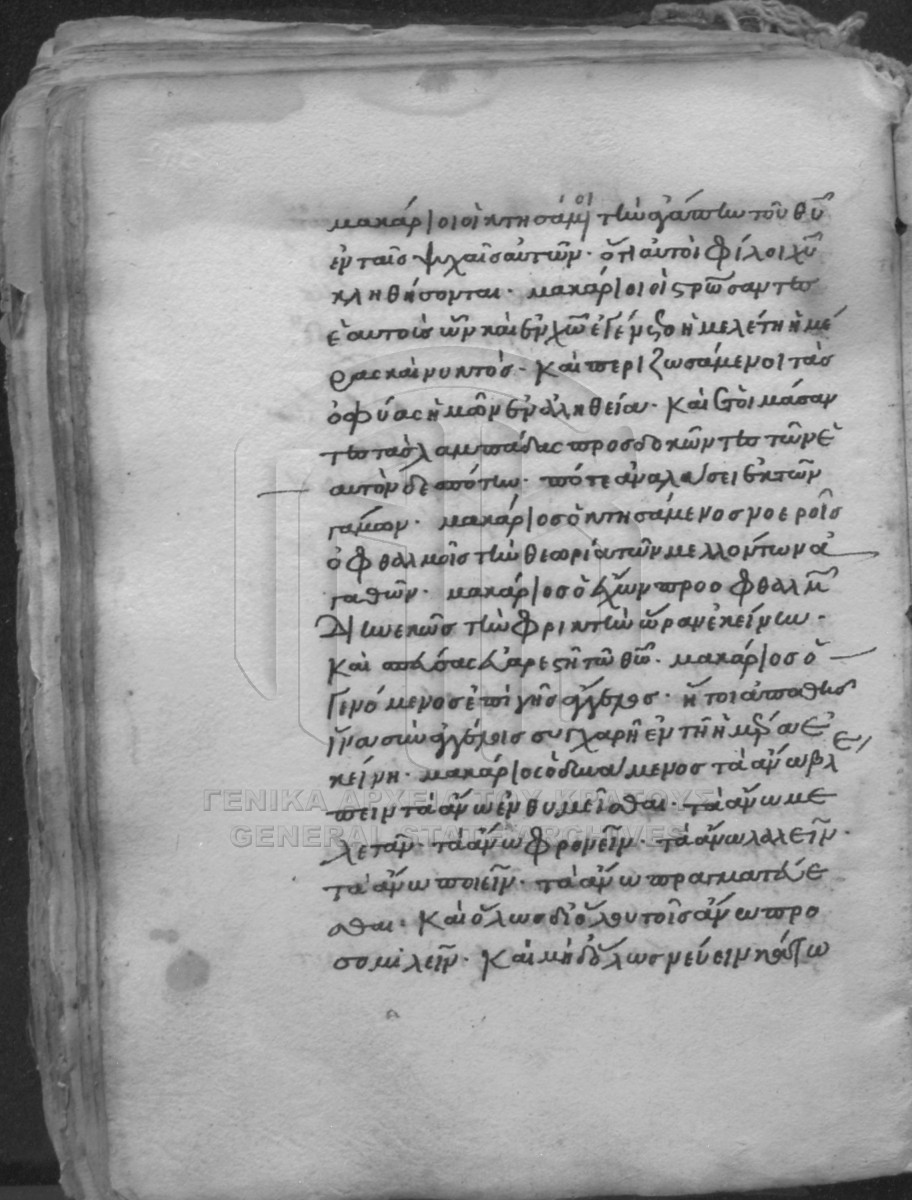 μακάριοι οἱ κτησάμενοι τὴν ἀγάπην τοῦ θυ
ἐν ταῖς ψυχαῖς αὐτῶν· ὅτι αὐτοὶ φίλοι χυ
κληθήσονται· μακάριοι οἱ στρώσαντες
ἑαυτοῖς καὶ ἐν χω ἐγένετο ἡ μελέτη ἡμέ
ρας καὶ νυκτός· καὶ περιζωσάμενοι τὰς
ὀσφύας ἡμῶν ἐν ἀληθεία· καὶ ἑτοιμάσαν
τες τὰς λαμπάδας προσδοκῶντες τῶν ἑ
αυτὸν δεσπότην· πότε ἀναλύσει ἐκ τῶν
γάμων· μακάριος ὁ κτησάμενος νοεροῖς
ὀφθαλμοῖς τὴν θεωρία τῶν μελλόντων ἀ
γαθῶν· μακάριος ὁ ἔχων προ οφθαλμ
διηνεκῶς τὴν φρικτὴν ὥραν ἐκείνην·
καὶ σπεύσας εὐαρεστῆ τῶ θω· μακάριος ὁ
γενόμενος ἐπὶ γῆς ἄγγελος· ἤτοι ἀπαθὴς
ἵνα σὺν ἀγγέλοις συγχαρῆ ἐν τῆ ἡμέρα ἐ
κείνη· μακάριος ὁ δυνάμενος τὰ ἄνω βλέ
πειν τὰ ἄνω ἐνθυμεῖσθαι· τὰ ἄνω με
λετᾶν· τὰ ἄνω φρονεῖν· τὰ ἄνω λαλεῖν·
τὰ ἄνω ποιεῖν· τὰ ἄνω πραγματεύε
σθαι· καὶ ὅλως δι ὅλου τοῖς ἄνω προ
σομιλεῖν· καὶ μηδ ὅλως νεύειν κάτω
ΓΕΝΙΚΑ ΑΡΧΕΙΑ ΤΟΥ ΚΡΑΤΟΥΣ
GENERAL STATE ARCHIVES